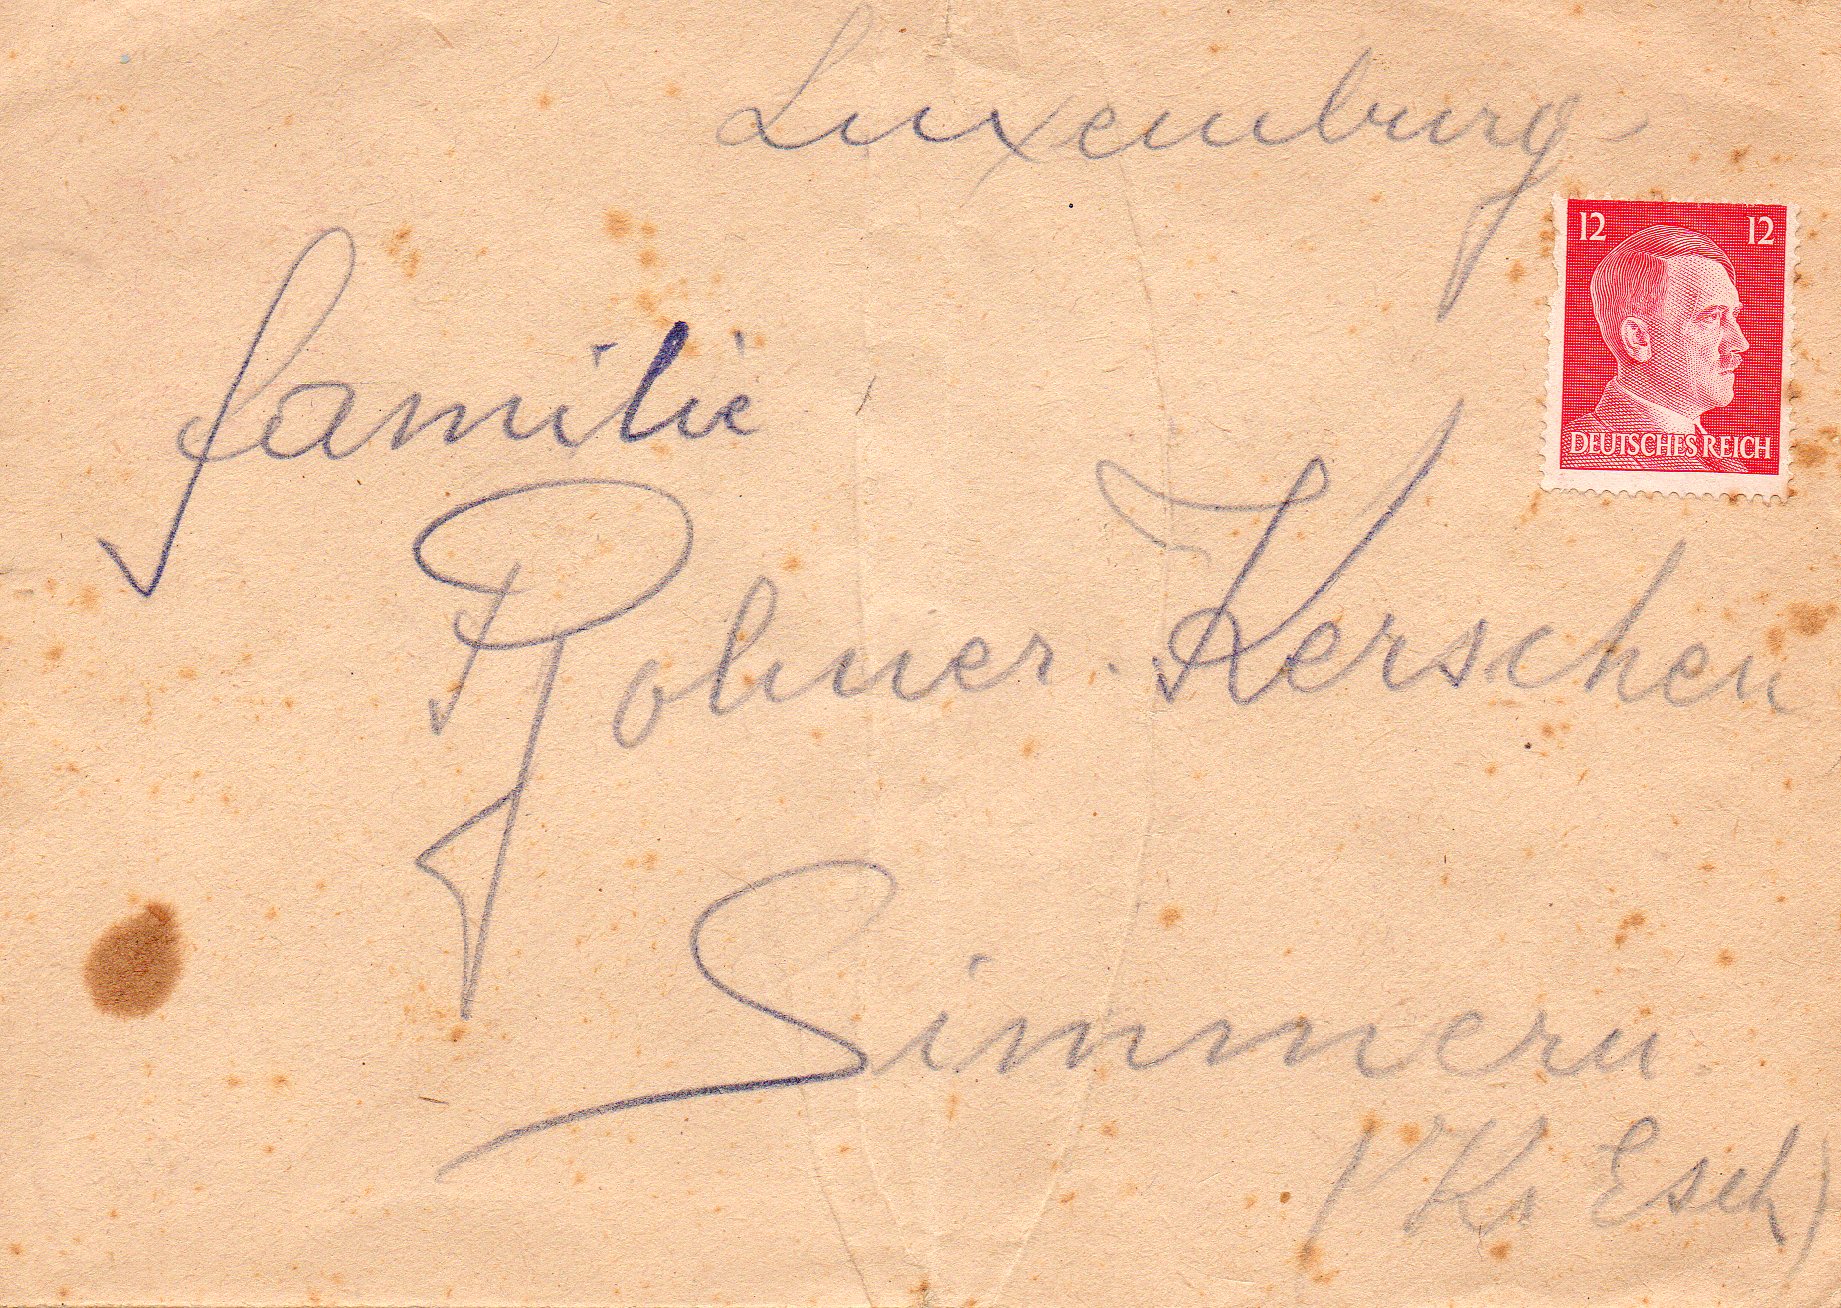 Luxemburg
12 12
DEUTSCHES REICH
Familie
Kerschen
Simmern
(Ks Esch)